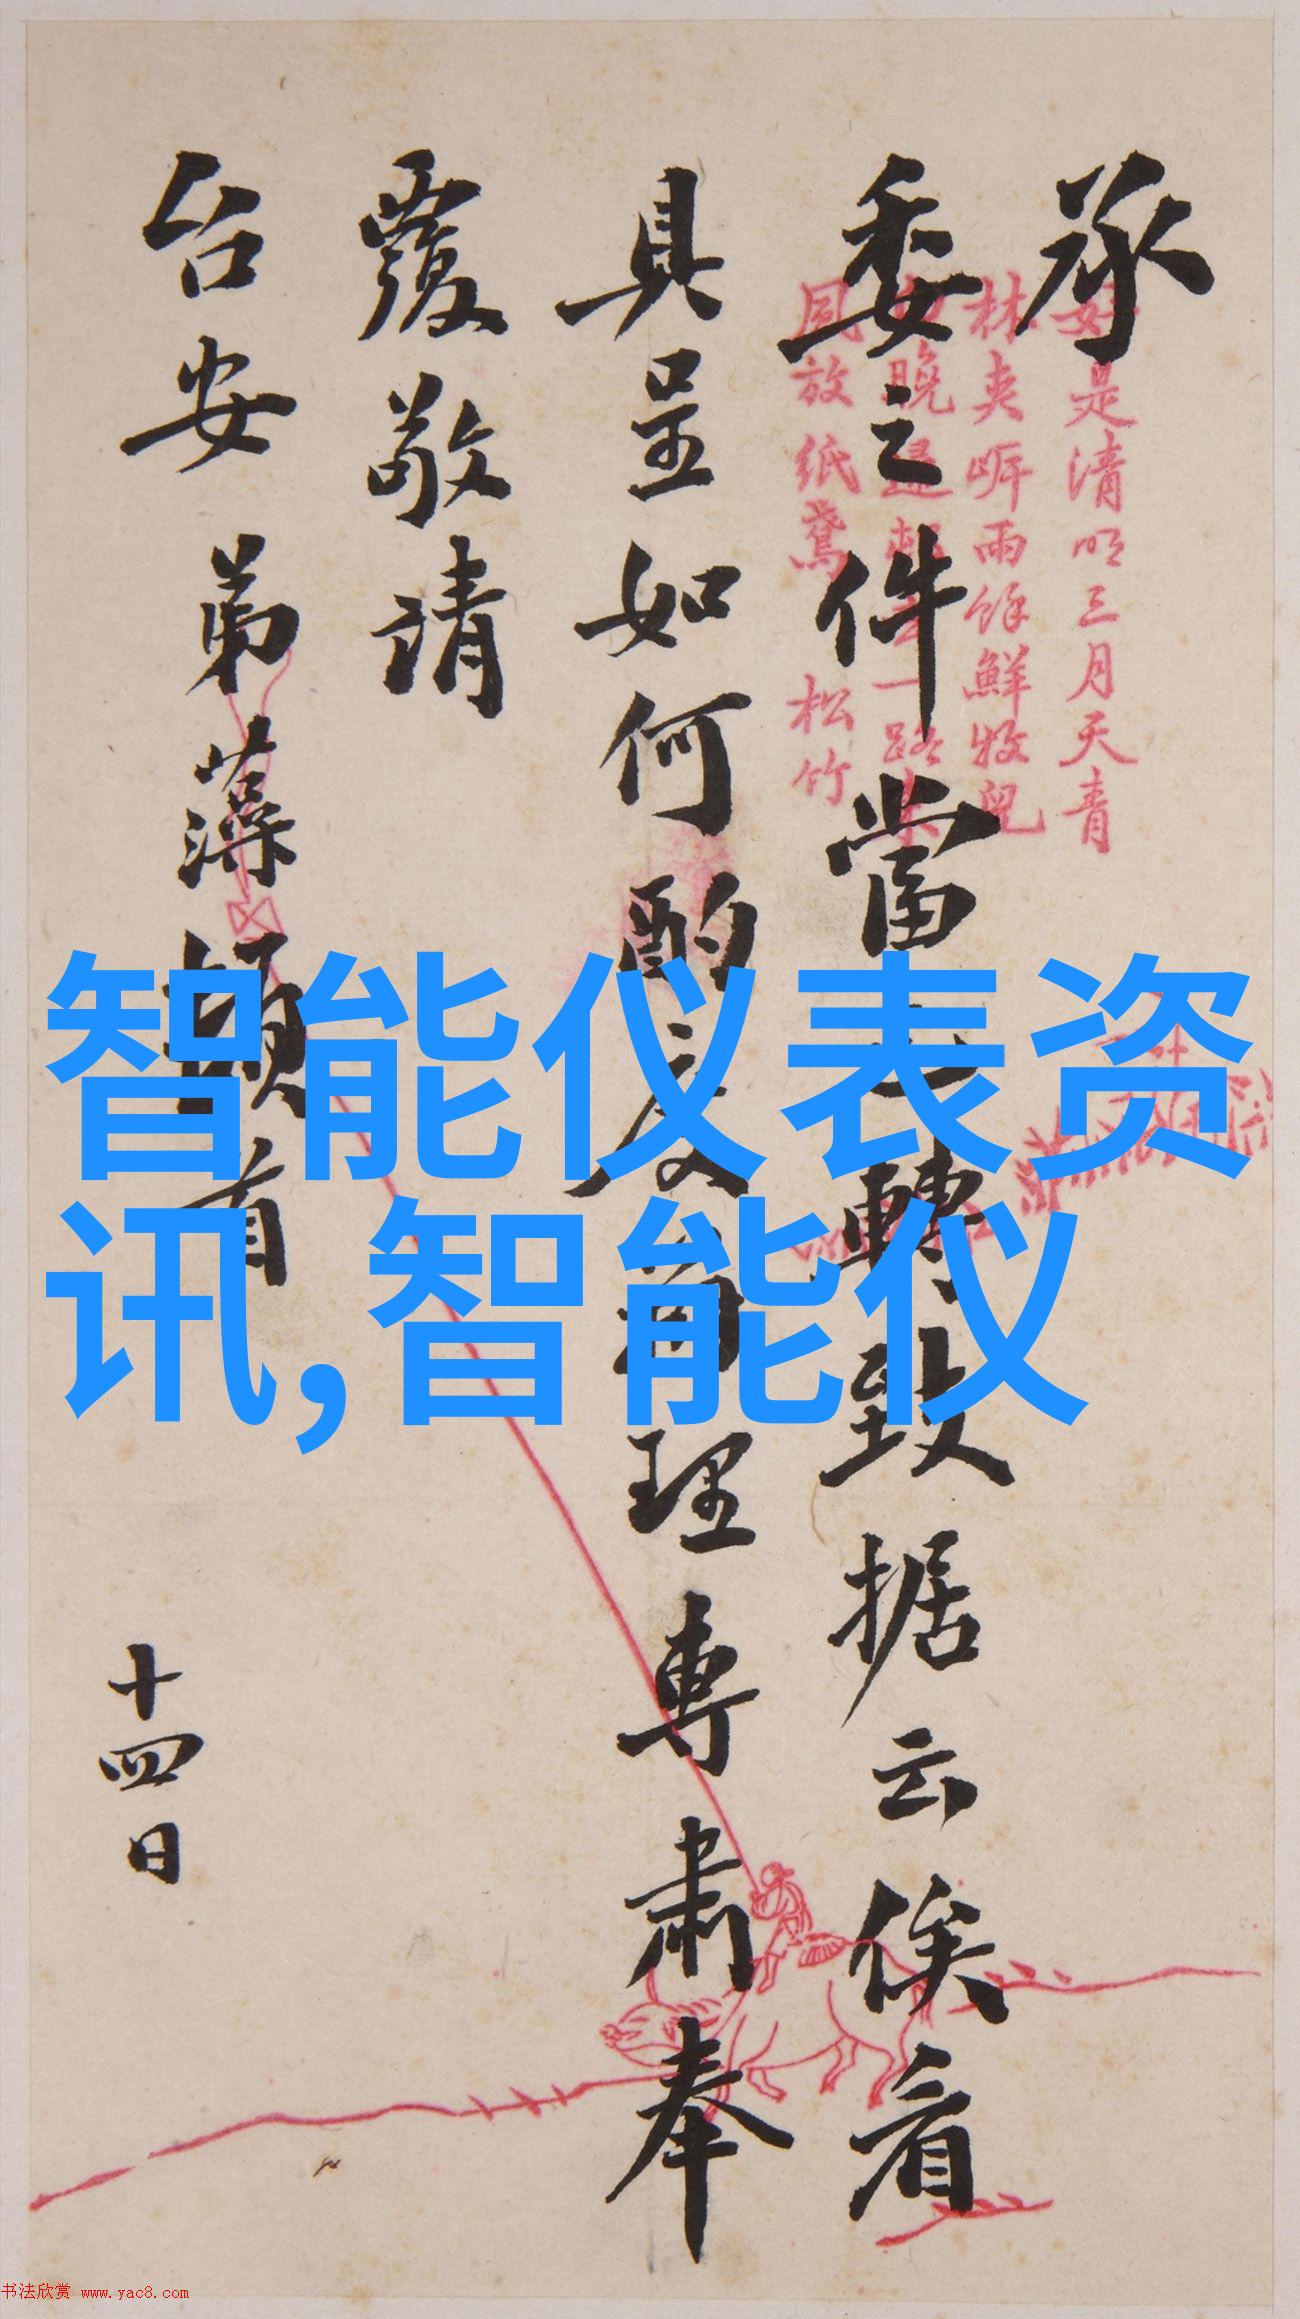 承
委之件當即轉致據云俟看
具呈如何酌度辦理專肅奉
覆敬請
台安 弟藻頓首
十四日
好是清明三月天青
林夹㟁雨餘鮮牧兒
晚歸
同放紙鳶 松竹
智能仪表资
讯,智能仪
书法欣赏 www.yac8.com